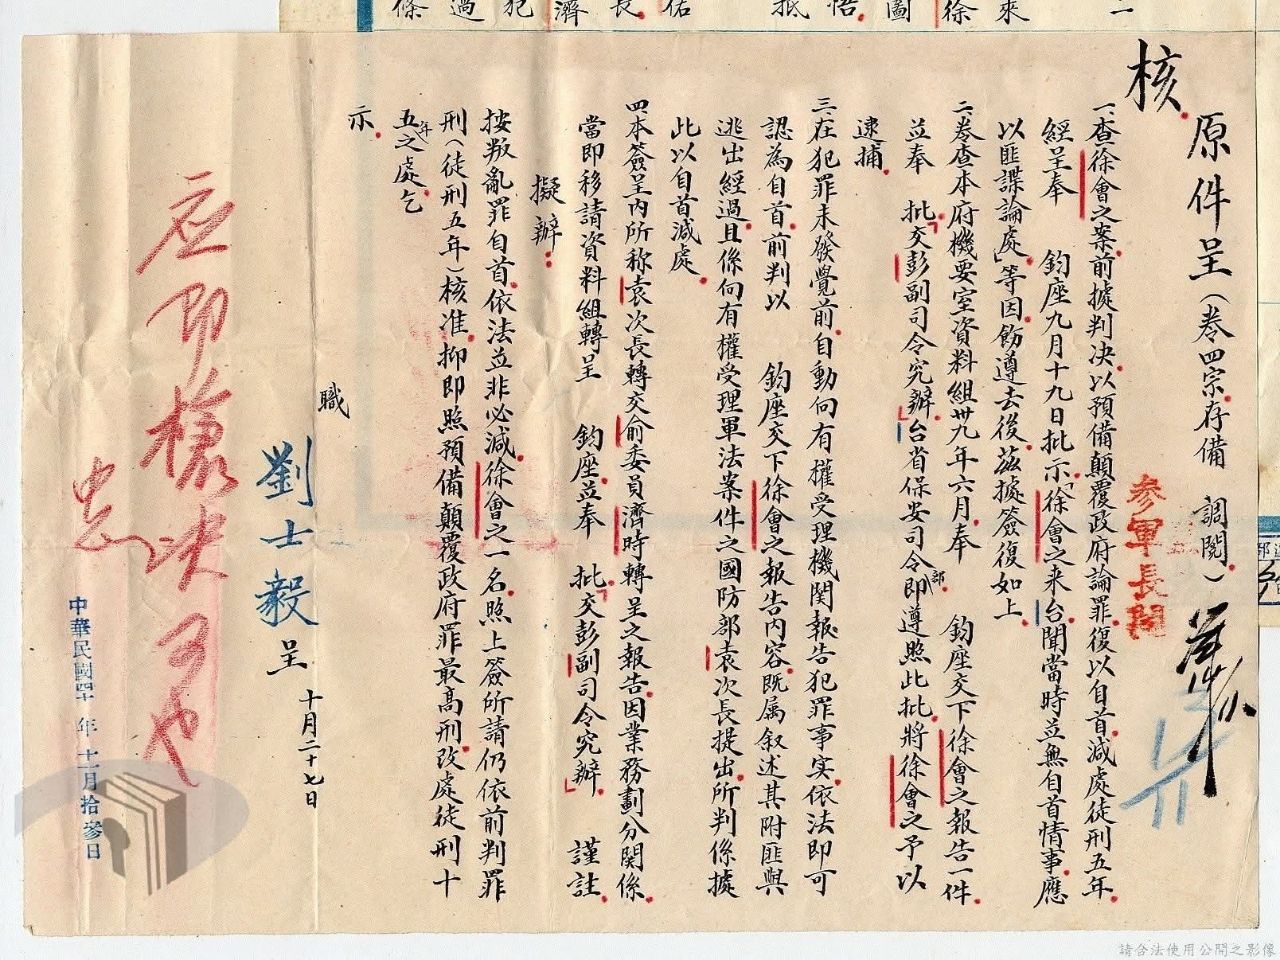 核
原件呈（卷四宗存備 調閱。）
參軍長閱
一、查徐會之案前據判決以預備顛覆政府論罪復以自首減處徒刑五年
經呈奉 鈞座九月十九日批示「徐會之來台聞當時並無自首情事應
以匪諜論處」等因飭遵去後茲據簽復如上
二、卷查本府機要室資料組卅九年六月奉 鈞座交下徐會之報告一件
並奉 批「交彭副司令究辦」台省保安司令部即遵照此批將徐會之予以
逮捕
三、在犯罪未發覺前自動向有權受理機關報告犯罪事实依法即可
認為自首前判以 鈞座交下徐會之報告內容既属叙述其附匪與
逃出經過且係向有權受理軍法案件之國防部袁次長提出所判係據
此以自首減處
四、本簽呈內所称袁次長轉交俞委員濟時轉呈之報告因業務劃分關係
當即移請資料組轉呈 鈞座並奉 批「交彭副司令究辦」 謹註
擬辦：
按叛亂罪自首依法並非必減徐會之一名照上簽所請仍依前判罪
刑（徒刑五年）核准抑即照預備顛覆政府罪最高刑改處徒刑十
五年之處乞
示
職
劉士毅呈 十月二十七日
应即槍决可也
中華民國四十年十一月拾參日
請合法使用公開之影像